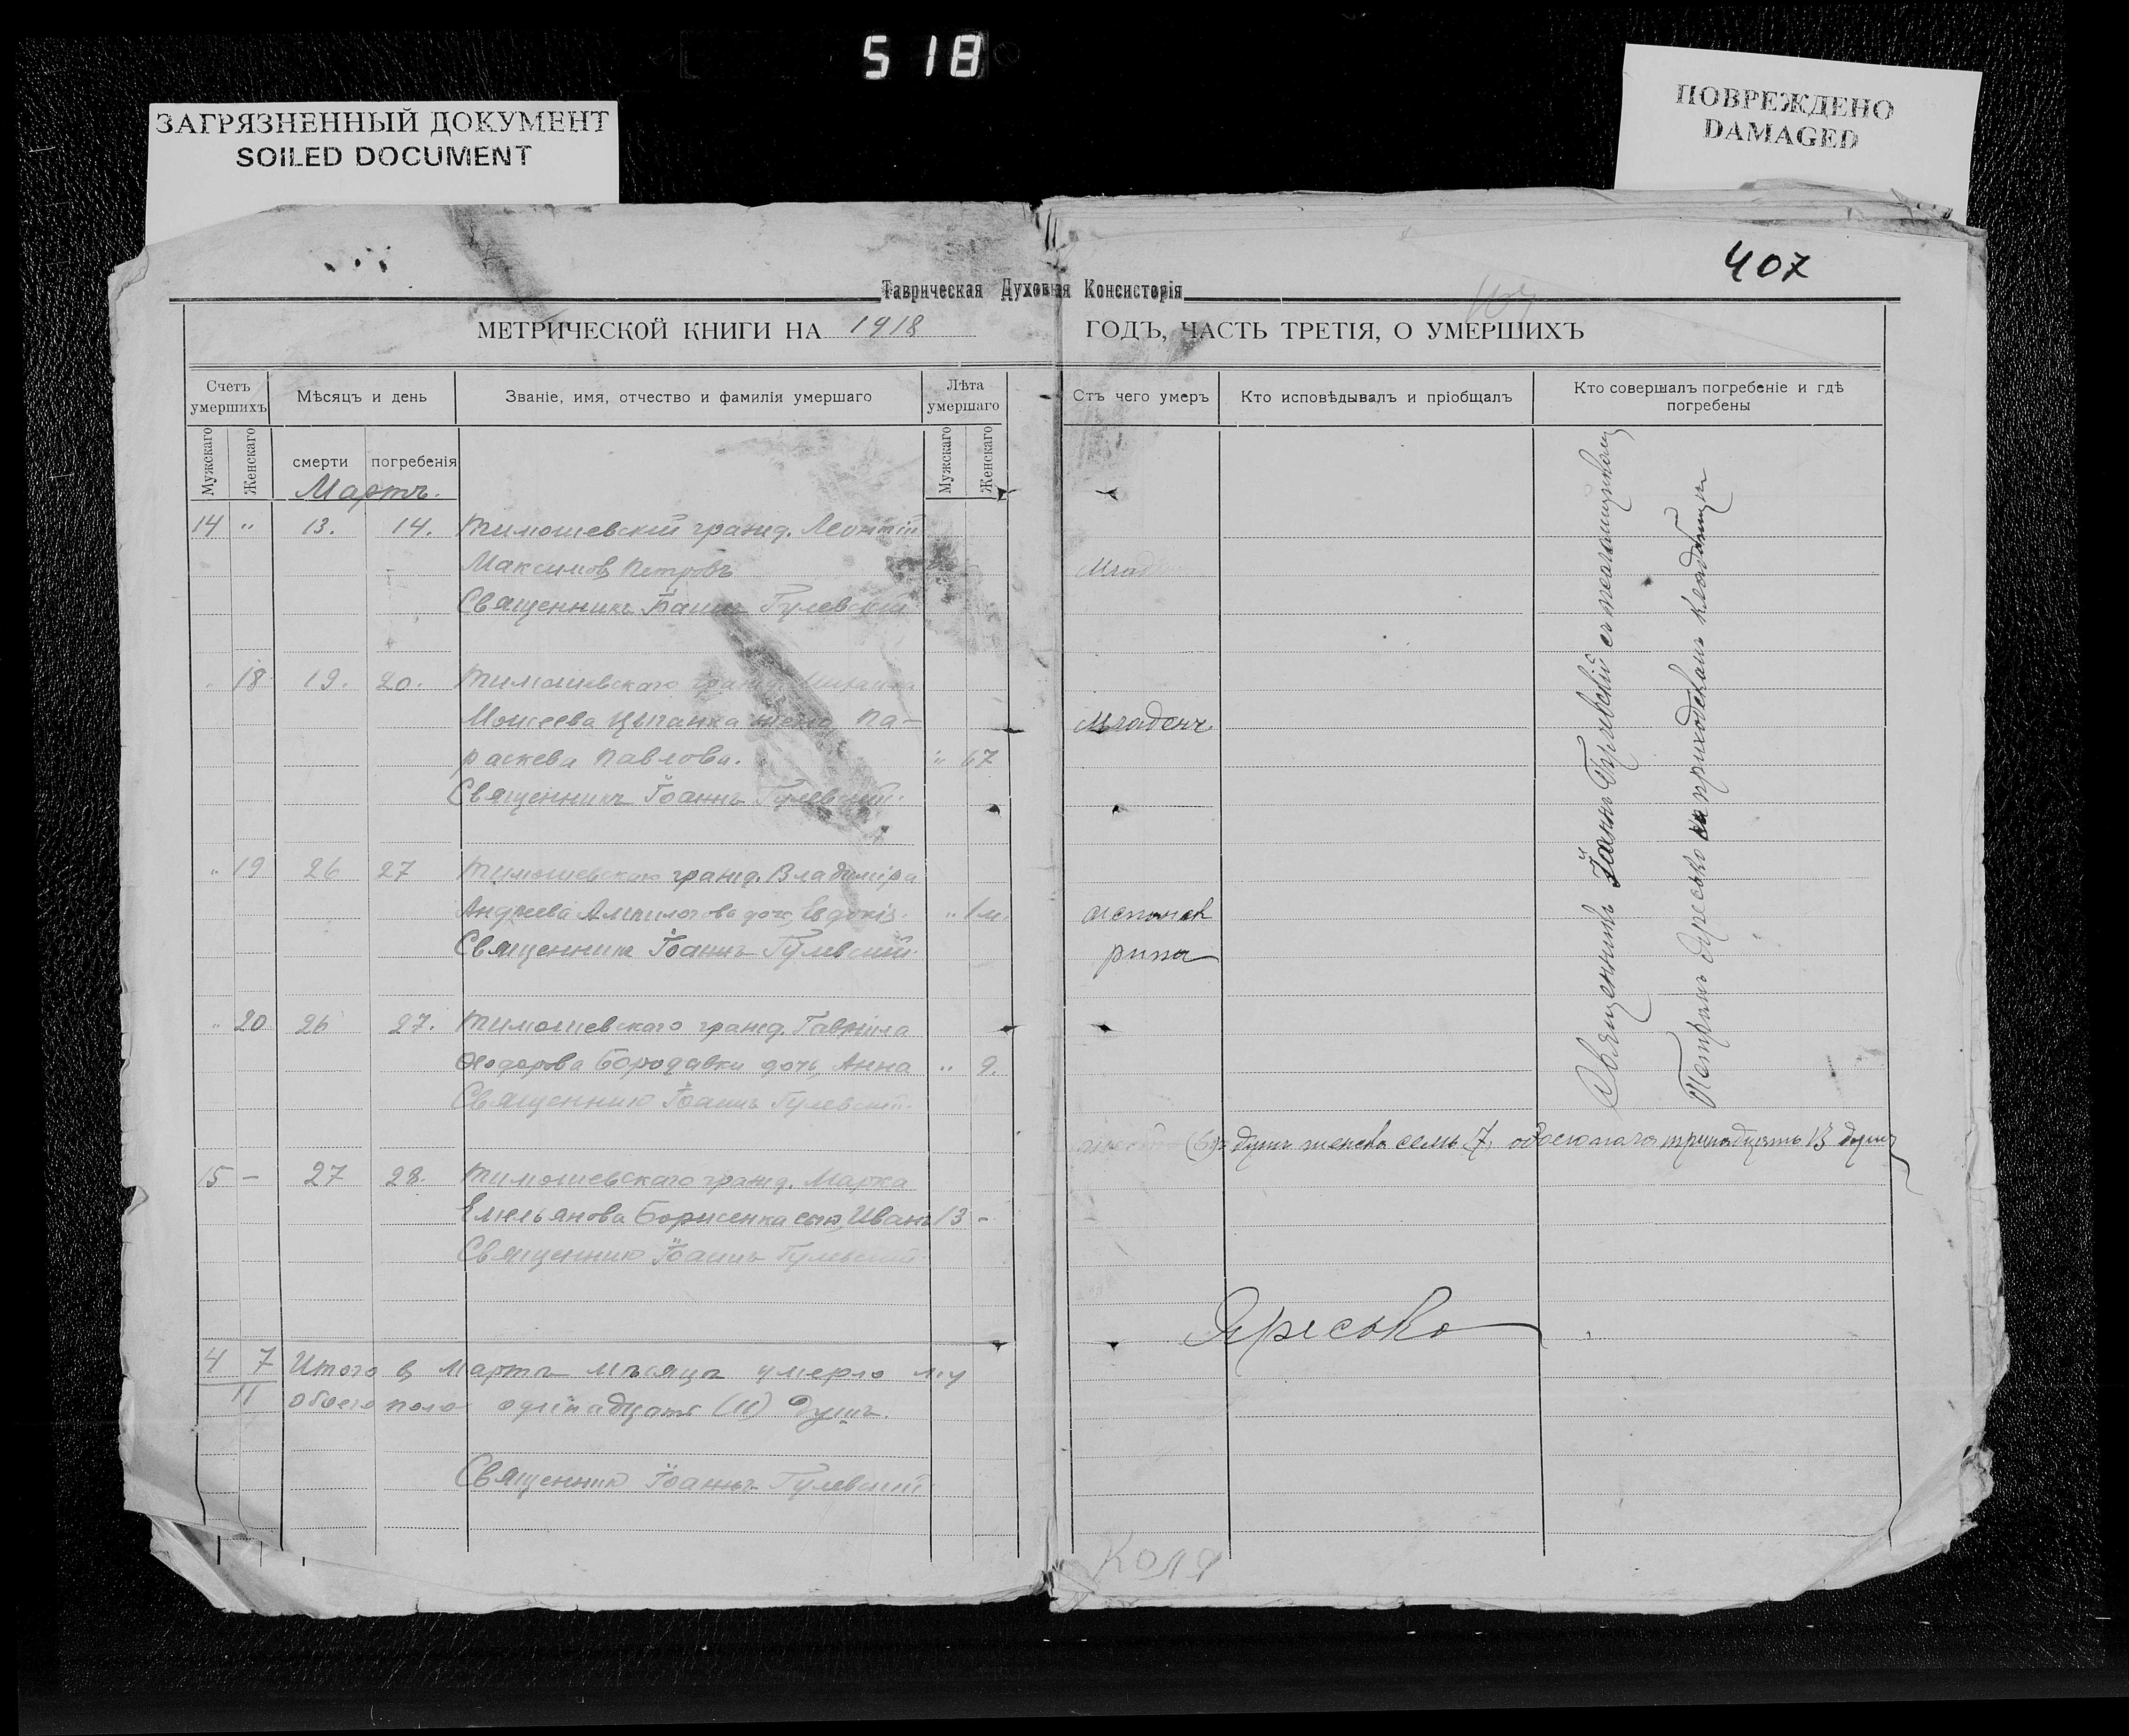 518
ЗАГРЯЗНЕННЫЙ ДОКУМЕНТ
SOILED DOCUMENT
ПОВРЕЖДЕНО
DAMAGED
407
Таврическая Духовная Консисторія
МЕТРИЧЕСКОЙ КНИГИ НА 1918
Счетъ умершихъ
Мужскаго
Женскаго
Мѣсяцъ и день
смерти
погребенія
Званіе, имя, отчество и фамилія умершаго
Лѣта умершаго
Мужскаго
Женскаго
Мартъ.
14 " 13. 14. Тимошевскій гражд. Леонтій
Максимовъ Петровъ
Священникъ Іоаннъ Гулевскій
" 18 19. 20. Тимошевскаго гражд.
Моисеева Цыганка жена Па-
раскева Павлова. " 67
Священникъ Іоаннъ Гулевскій.
" 19 26 27 Тимошевскаго гражд. Владиміра
Андреева дочь Евдокія. " 1 м.
Священникъ Іоаннъ Гулевскій.
" 20 26 27. Тимошевскаго гражд. Гавріила
Ѳедорова Бородавки дочь Анна " 9.
Священникъ Іоаннъ Гулевскій.
15 - 27 28. Тимошевскаго гражд. Марка
Емельянова Борисенка сынъ Иванъ 13 -
Священникъ Іоаннъ Гулевскій.
4 7 Итого въ Мартѣ мѣсяцѣ умерло
11 обоего пола одинадцать (11) душъ.
Священникъ Іоаннъ Гулевскій.
ГОДЪ, ЧАСТЬ ТРЕТІЯ, О УМЕРШИХЪ
Отъ чего умеръ
Кто исповѣдывалъ и пріобщалъ
Кто совершалъ погребеніе и гдѣ погребены
Младенч.
Священникъ Іоаннъ Гулевскій съ псаломщикомъ
Петромъ Яресько на приходскомъ кладбищѣ
душъ женска семь 7, обоего пола тринадцать 13 душъ
Яресько
Коля